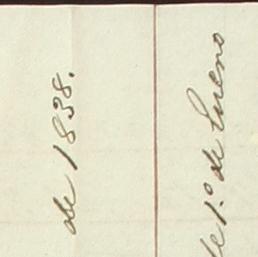 de 1838.
de 1.º de Enero